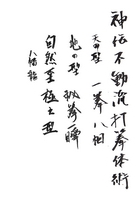 神伝不動流打拳体術
天の型 一拳八個
地の型 秘拳一瞬
自然至極之型